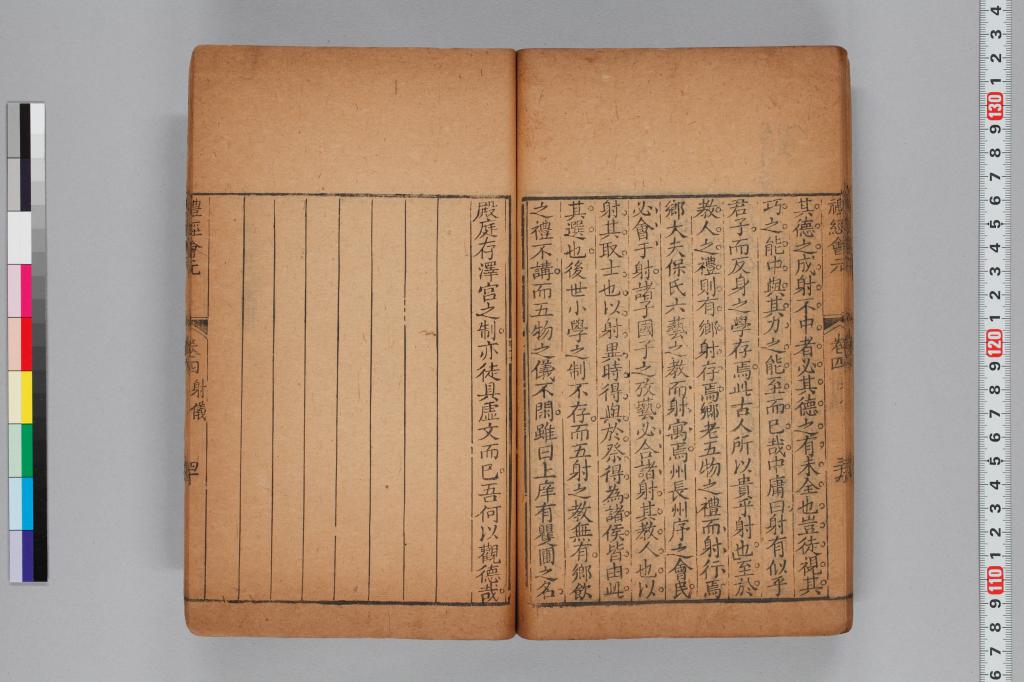 禮經會元
卷四
其德之成射不中者必其德之有未全也豈徒視其
巧之能中與其力之能至而已哉中庸曰射有似乎
君子而反身之學存焉此古人所以貴乎射也至於
教人之禮則有鄉射存焉鄉老五物之禮而射行焉
鄉大夫保氏六藝之教而射寓焉州長州序之會民
必會于射諸子國子之攷藝必合諸射其教人也以
射其取士也以射異時得與於祭得為諸侯皆由此
其選也後世小學之制不存而五射之教無有鄉飲
之禮不講而五物之儀不閑雖曰上庠有矍圃之名
殿庭存澤宮之制亦徒具虛文而已吾何以觀德哉
禮經會元
卷四
射儀